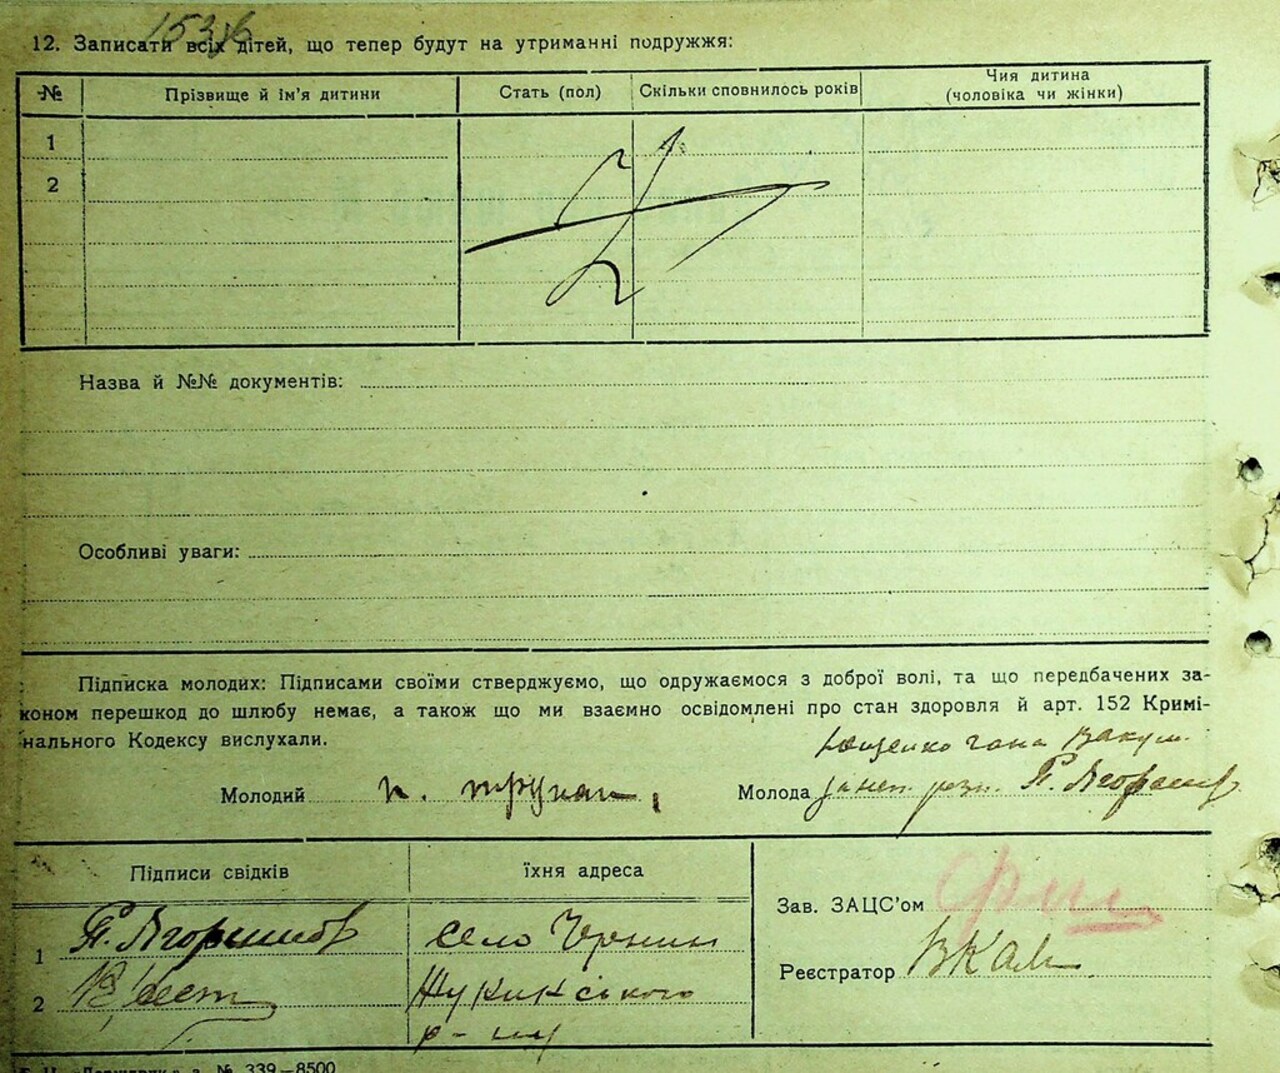 153
12. Записати всіх дітей, що тепер будут на утриманні подружжя:
№ Прізвище й ім'я дитини Стать (пол) Скільки сповнилось років Чия дитина (чоловіка чи жінки)
1
2
Назва й №№ документів:
Особливі уваги:
Підписка молодих: Підписами своїми стверджуємо, що одружаємося з доброї волі, та що передбачених за-
коном перешкод до шлюбу немає, а також що ми взаємно освідомлені про стан здоровля й арт. 152 Кримі-
нального Кодексу вислухали.
Ющенко Гана
Молодий Молода
Підписи свідків їхня адреса
Зав. ЗАЦС'ом
1 село
Реєстратор
2
р-ну
№ 339—8500